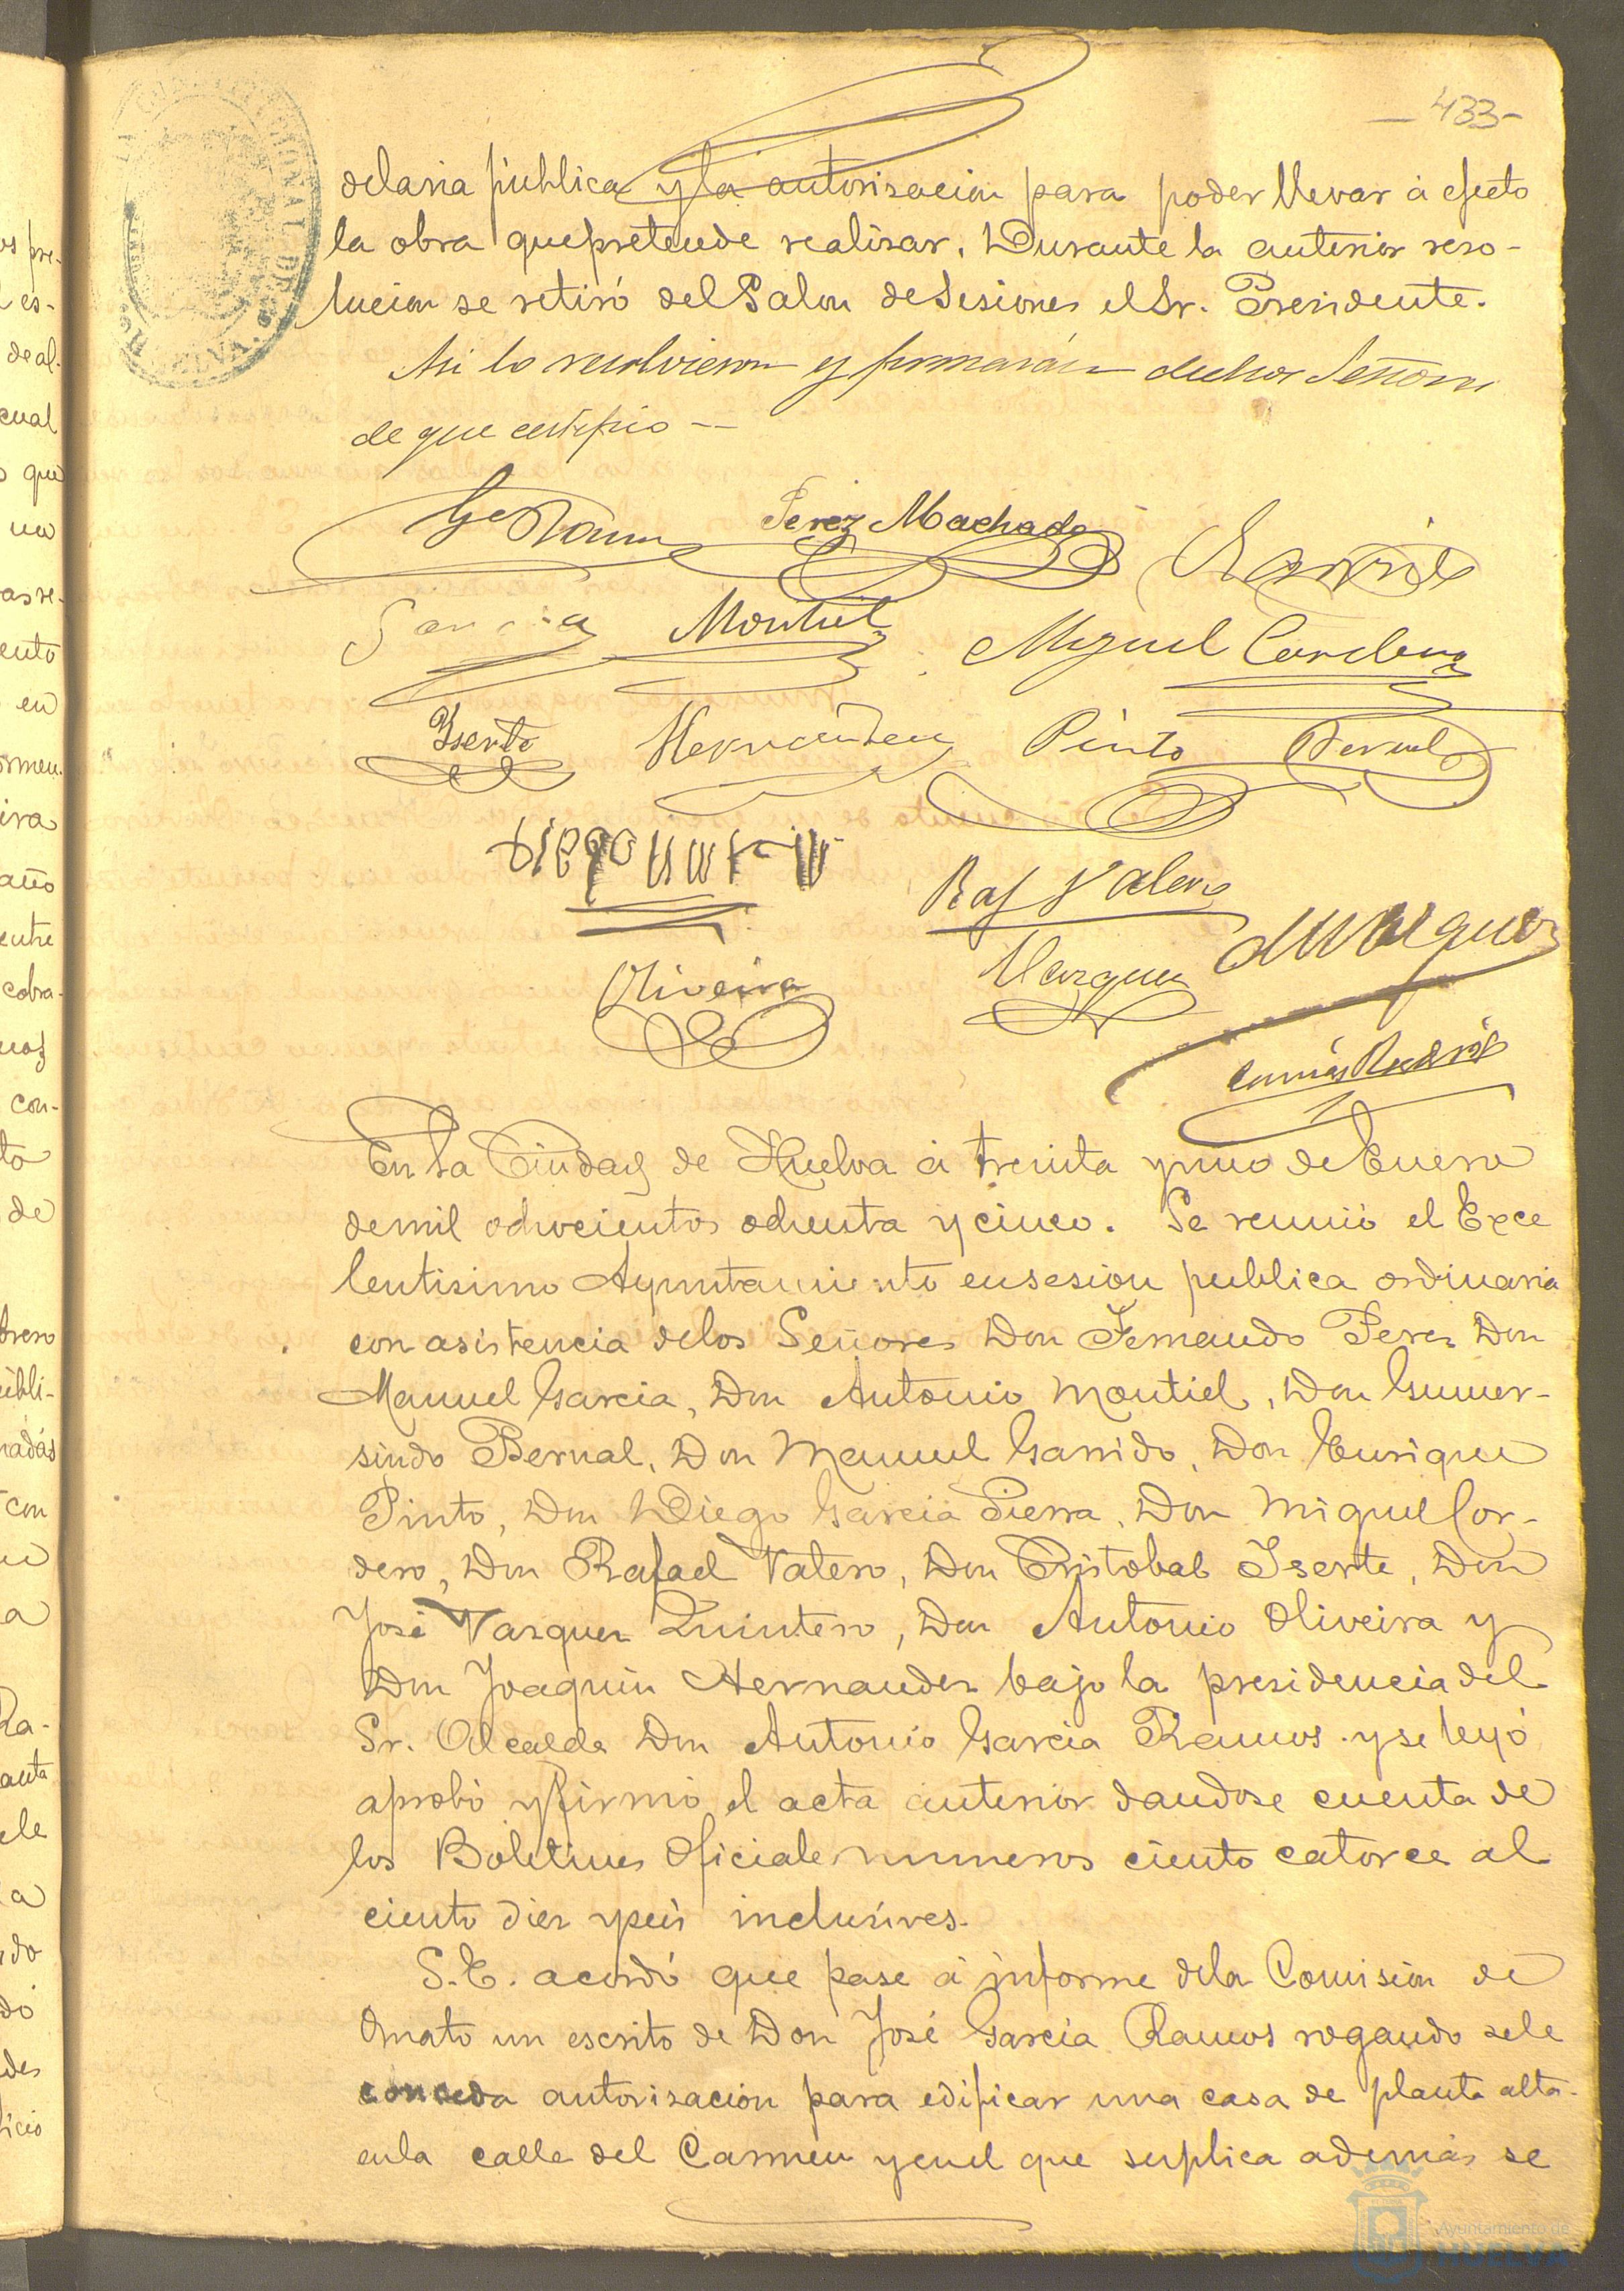 433-
dela via pública y la autorisacion para poder llevar á efecto
la obra que pretende realisar. Durante la anterior reso-
lucion se retiró del Salon de Sesiones el Sr. Presidente.
Asi lo resolvieron y firmarán dichos Señores
de que certifico --
Ga Ramos Perez Machado Garrido
Garcia Montiel Miguel Cordero
Iserte Hernandez Pinto Bernal
Diego
Raf Valero
Oliveira Vazquez
En la Ciudad de Huelva á treinta y uno de Enero
de mil ochocientos ochenta y cinco. Se reunió el Exce
lentisimo Ayuntamiento en sesion publica ordinaria
con asistencia delos Señores Don Fernando Perez Don
Manuel Garcia, Don Antonio Montiel, Don Gumer-
sindo Bernal, Don Manuel Garrido, Don Enrique
Pinto, Don Diego Garcia Sierra, Don Miguel Cor-
dero, Don Rafael Valero, Don Cristobal Iserte, Don
José Vazquez Quintero, Don Antonio Oliveira y
Don Joaquin Hernandez bajo la presidencia del
Sr. Alcalde Don Antonio Garcia Ramos y se leyó
aprobó y firmó el acta anterior dandose cuenta de
los Boletines Oficiales numeros ciento catorce al
ciento diez y seis inclusives.
S.E. acordó que pase á informe dela Comision de
Ornato un escrito de Don José Garcia Ramos rogando sele
conceda autorizacion para edificar una casa de planta alta
en la calle del Carmen y en el que suplica además se
Ayuntamiento de
HUELVA